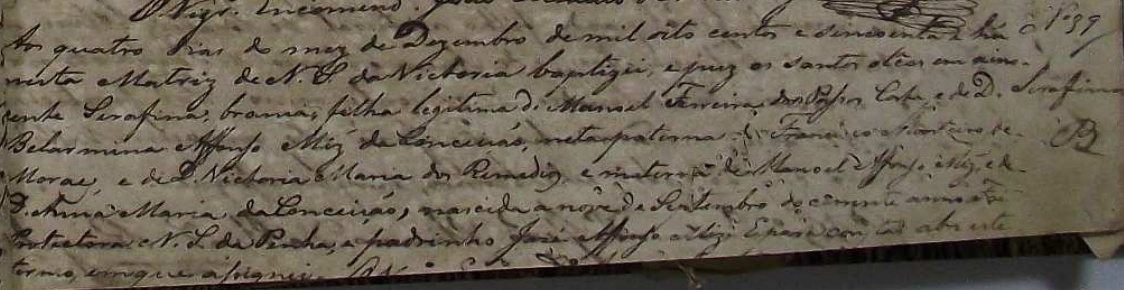 O Vigr. Encomend.
Aos quatro dias do mez de Dezembro de mil oito centos e sincoenta e hũ Nº 39
nesta Matriz de N. S. da Victoria baptizei, e puz os santos oleos em a ino-
cente Serafina, branca, filha legitima de Manoel Ferreira dos Passos Costa, e de D. Serafina
Belarmina Affonso Miz da Conceicão, neta paterna de Francisco Monteiro de B
Moraes, e de D. Victoria Maria dos Remedios, e materna de Manoel Affonso Miz, e de
D. Anna Maria da Conceicão, nascida a nove de Setembro do corrente anno
Protectora N. S. da Penha, e padrinho José Affonso Miz. E para constar abri este
termo, em que asignei.